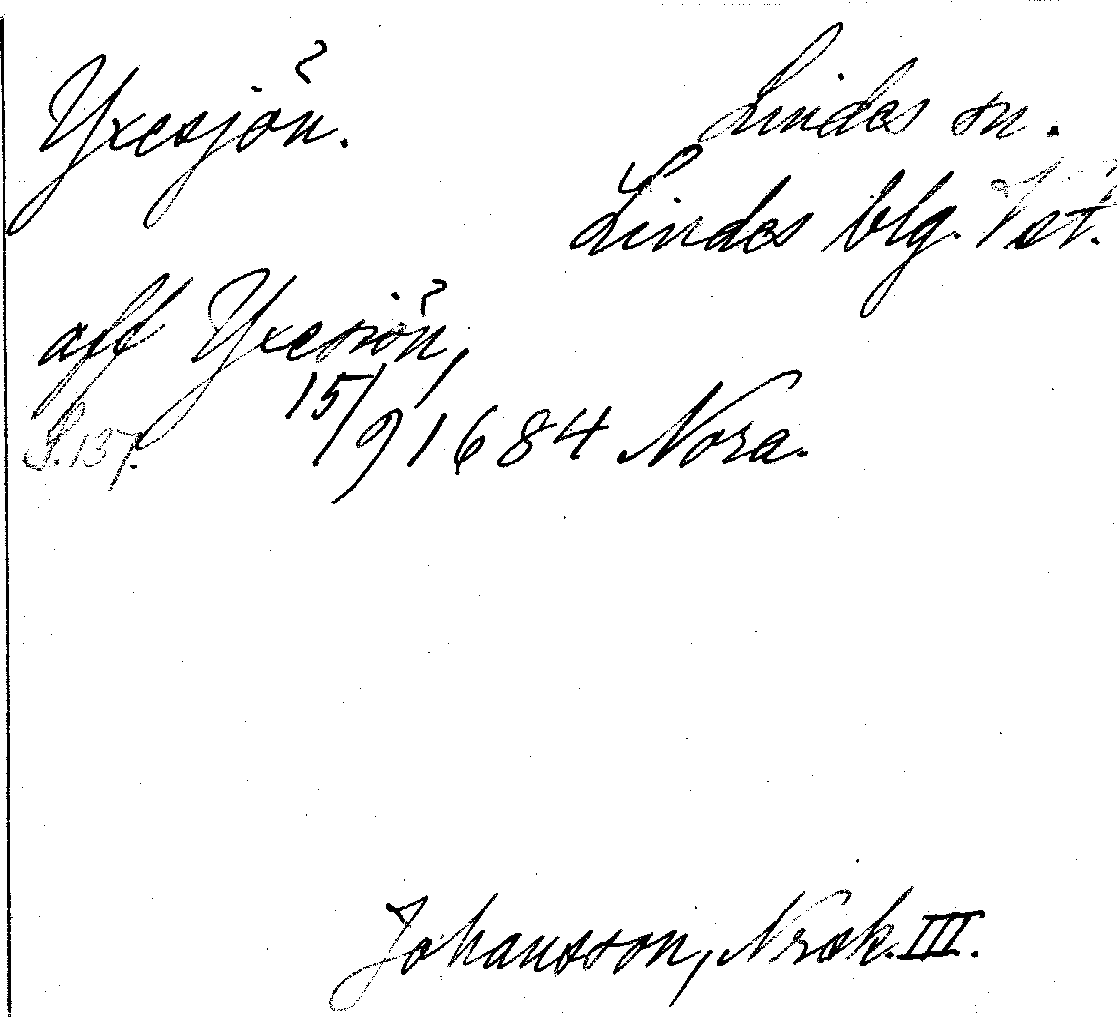 Yxesjön.
Lindes sn.
Lindes blg. Vst.
aff Yxesiön,
15/9 1684 Nora.
S. 137.
Johansson, Nrsk. III.